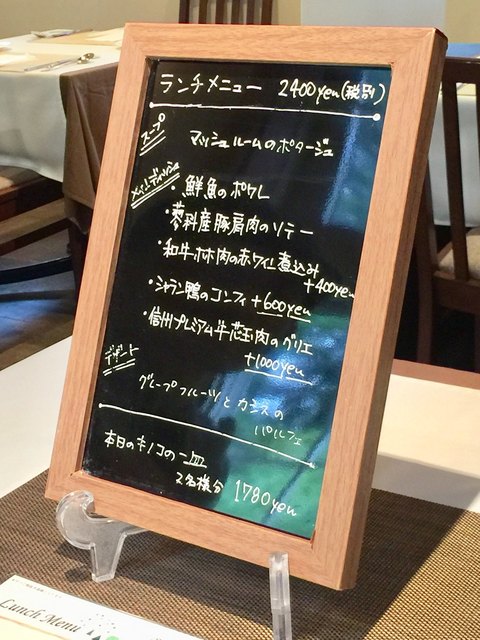 ランチメニュー 2400yen(税別)
スープ
マッシュルームのポタージュ
メインディッシュ
・鮮魚のポワレ
・蓼科産豚肩肉のソテー
・和牛ホホ肉の赤ワイン煮込み
+400yen
・シャラン鴨のコンフィ +600yen
・信州プレミアム牛芯玉肉のグリエ
+1000yen
デザート
グレープフルーツとカシスの
パルフェ
本日のキノコの一皿
2名様分 1780yen
Lunch Menu